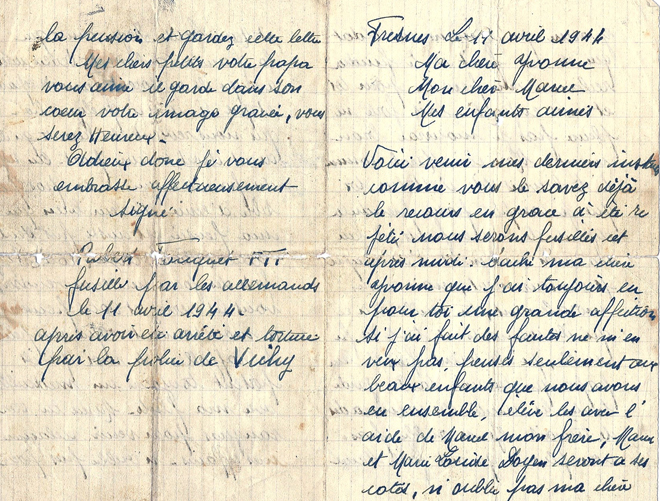 la pension et gardez cette lettre
Mes chers petits votre papa
vous aime il garde dans son
coeur votre image gravée, vous
serez Heureux-
Adieux donc je vous
embrasse affectueusement
signé
Robert Fouquet FTP
fusillé par les allemands
le 11 avril 1944
après avoir été arrêté et torturé
par la police de Vichy
Fresnes Le 11 avril 1944
Ma chère Yvonne
Mon chèr Marcel
Mes enfants aimés
Voici venir mes derniers instants
comme vous le savez déjà
le recours en grace à été re
jété nous serons fusillés cet
après midi. Sache ma chère
Yvonne que j'ai toujours eu
pour toi une grande affection
si j'ai fait des fautes ne m'en
veux pas, penses seulement aux
beaux enfants que nous avons
eu ensemble, élève les avec l'
aide de Marcel mon frère, Marc
et Marie Louise Doyen seront à ses
cotés, n'oublie pas ma chère